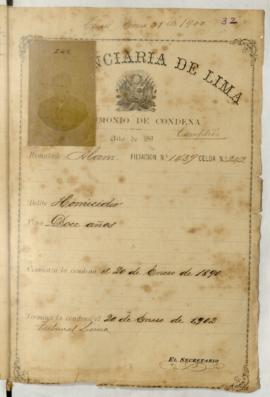 Enero 31 de 1900 32
242
NCIARIA DE LIMA
MONIO DE CONDENA
Año de 189
Cumplido
Rematado Asam. FILIACION N.º 1439 CELDA N.º 242
Delito Homicidio
Pena Doce años
Comienza la condena el 20 de Enero de 1890
Termina la condena el 20 de Enero de 1902
Tribunal Lima
EL SECRETARIO